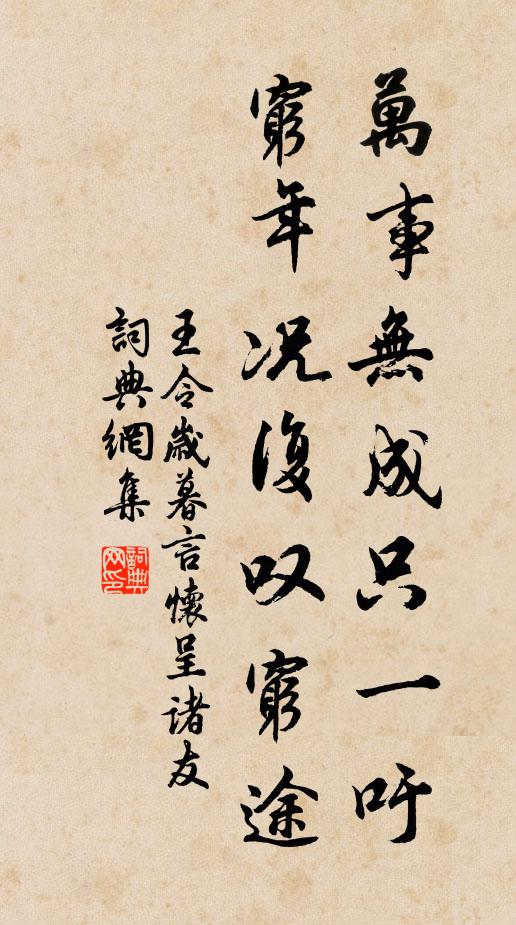 萬事無成只一吁
窮年况復叹窮途
王令歲暮言懷呈諸友
詞典網集
詞典
网印